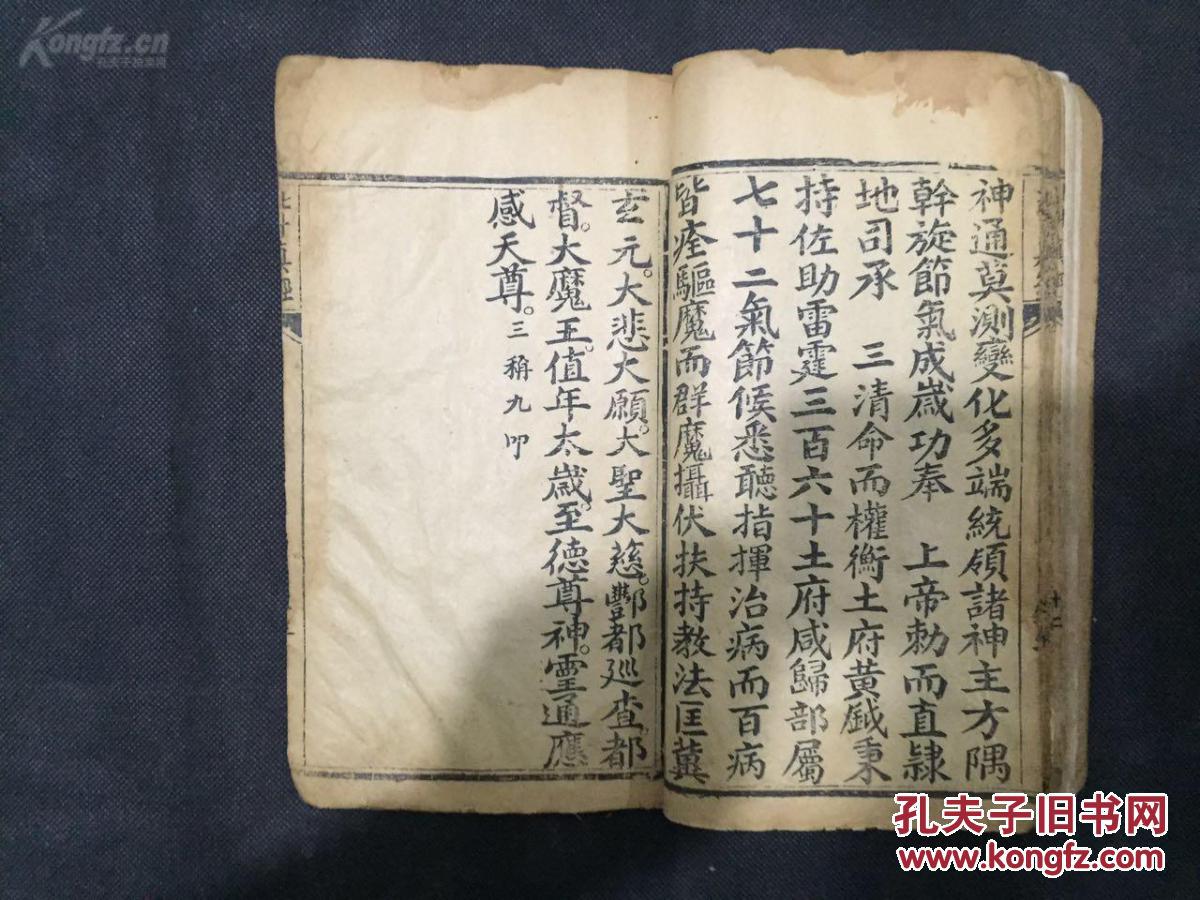 神通莫測變化多端統領諸神主方隅
幹旋節氣成歲功奉 上帝勅而直隸
地司承 三清命而權衡土府黃鉞秉
持佐助雷霆三百六十土府咸歸部屬
七十二氣節候悉聽指揮治病而百病
皆痊驅魔而群魔攝伏扶持教法匡冀
玄元。大悲大願。大聖大慈。酆都廵查都
督。大魔王。值年太歲。至德尊神。霊通應
感天尊。三稱九叩
真經
十二
Kongfz.cn
孔夫子拍卖网
孔夫子旧书网
www.kongfz.com